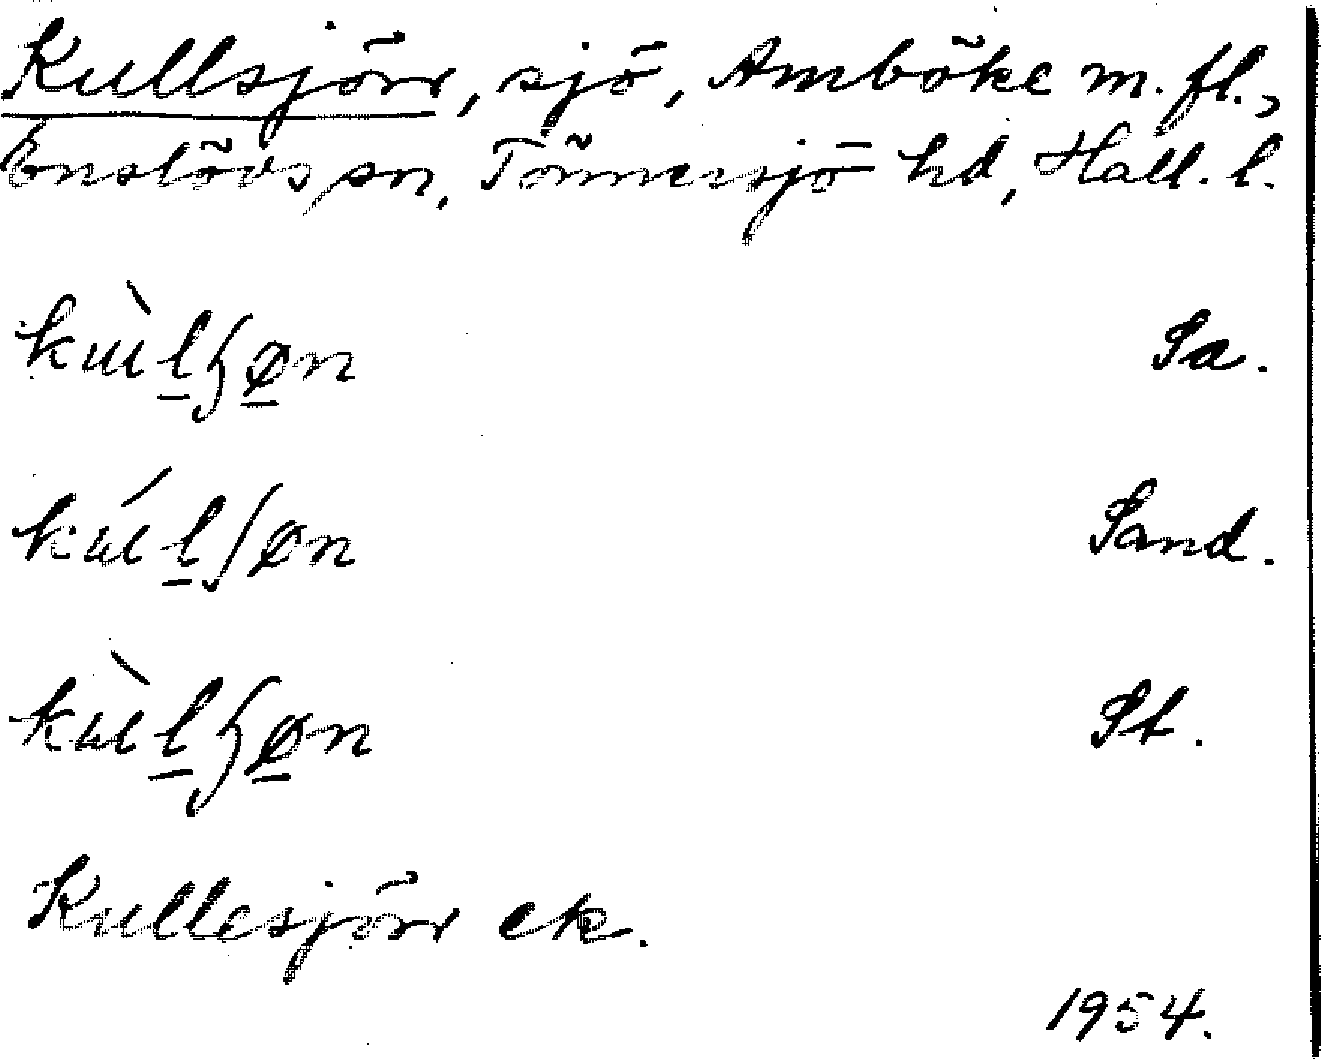 Kullsjön, sjö, Amböke m.fl.,
Enslövs sn, Tönnersjö hd, Hall. l.
kùlɧøn Sa.
kúlʃøn Sand.
kùlɧøn St.
Kullesjön ek.
1954.